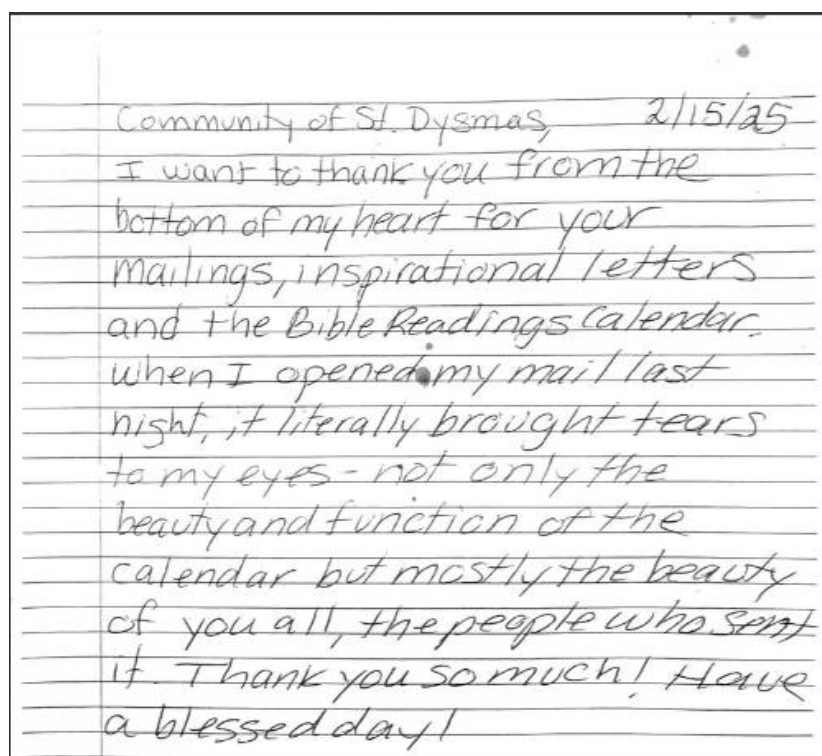 Community of St. Dysmas, 2/15/25
I want to thank you from the
bottom of my heart for your
mailings, inspirational letters
and the Bible Readings Calendar.
when I opened my mail last
night, it literally brought tears
to my eyes - not only the
beauty and function of the
calendar but mostly the beauty
of you all, the people who sent
it. Thank you so much! Have
a blessed day!